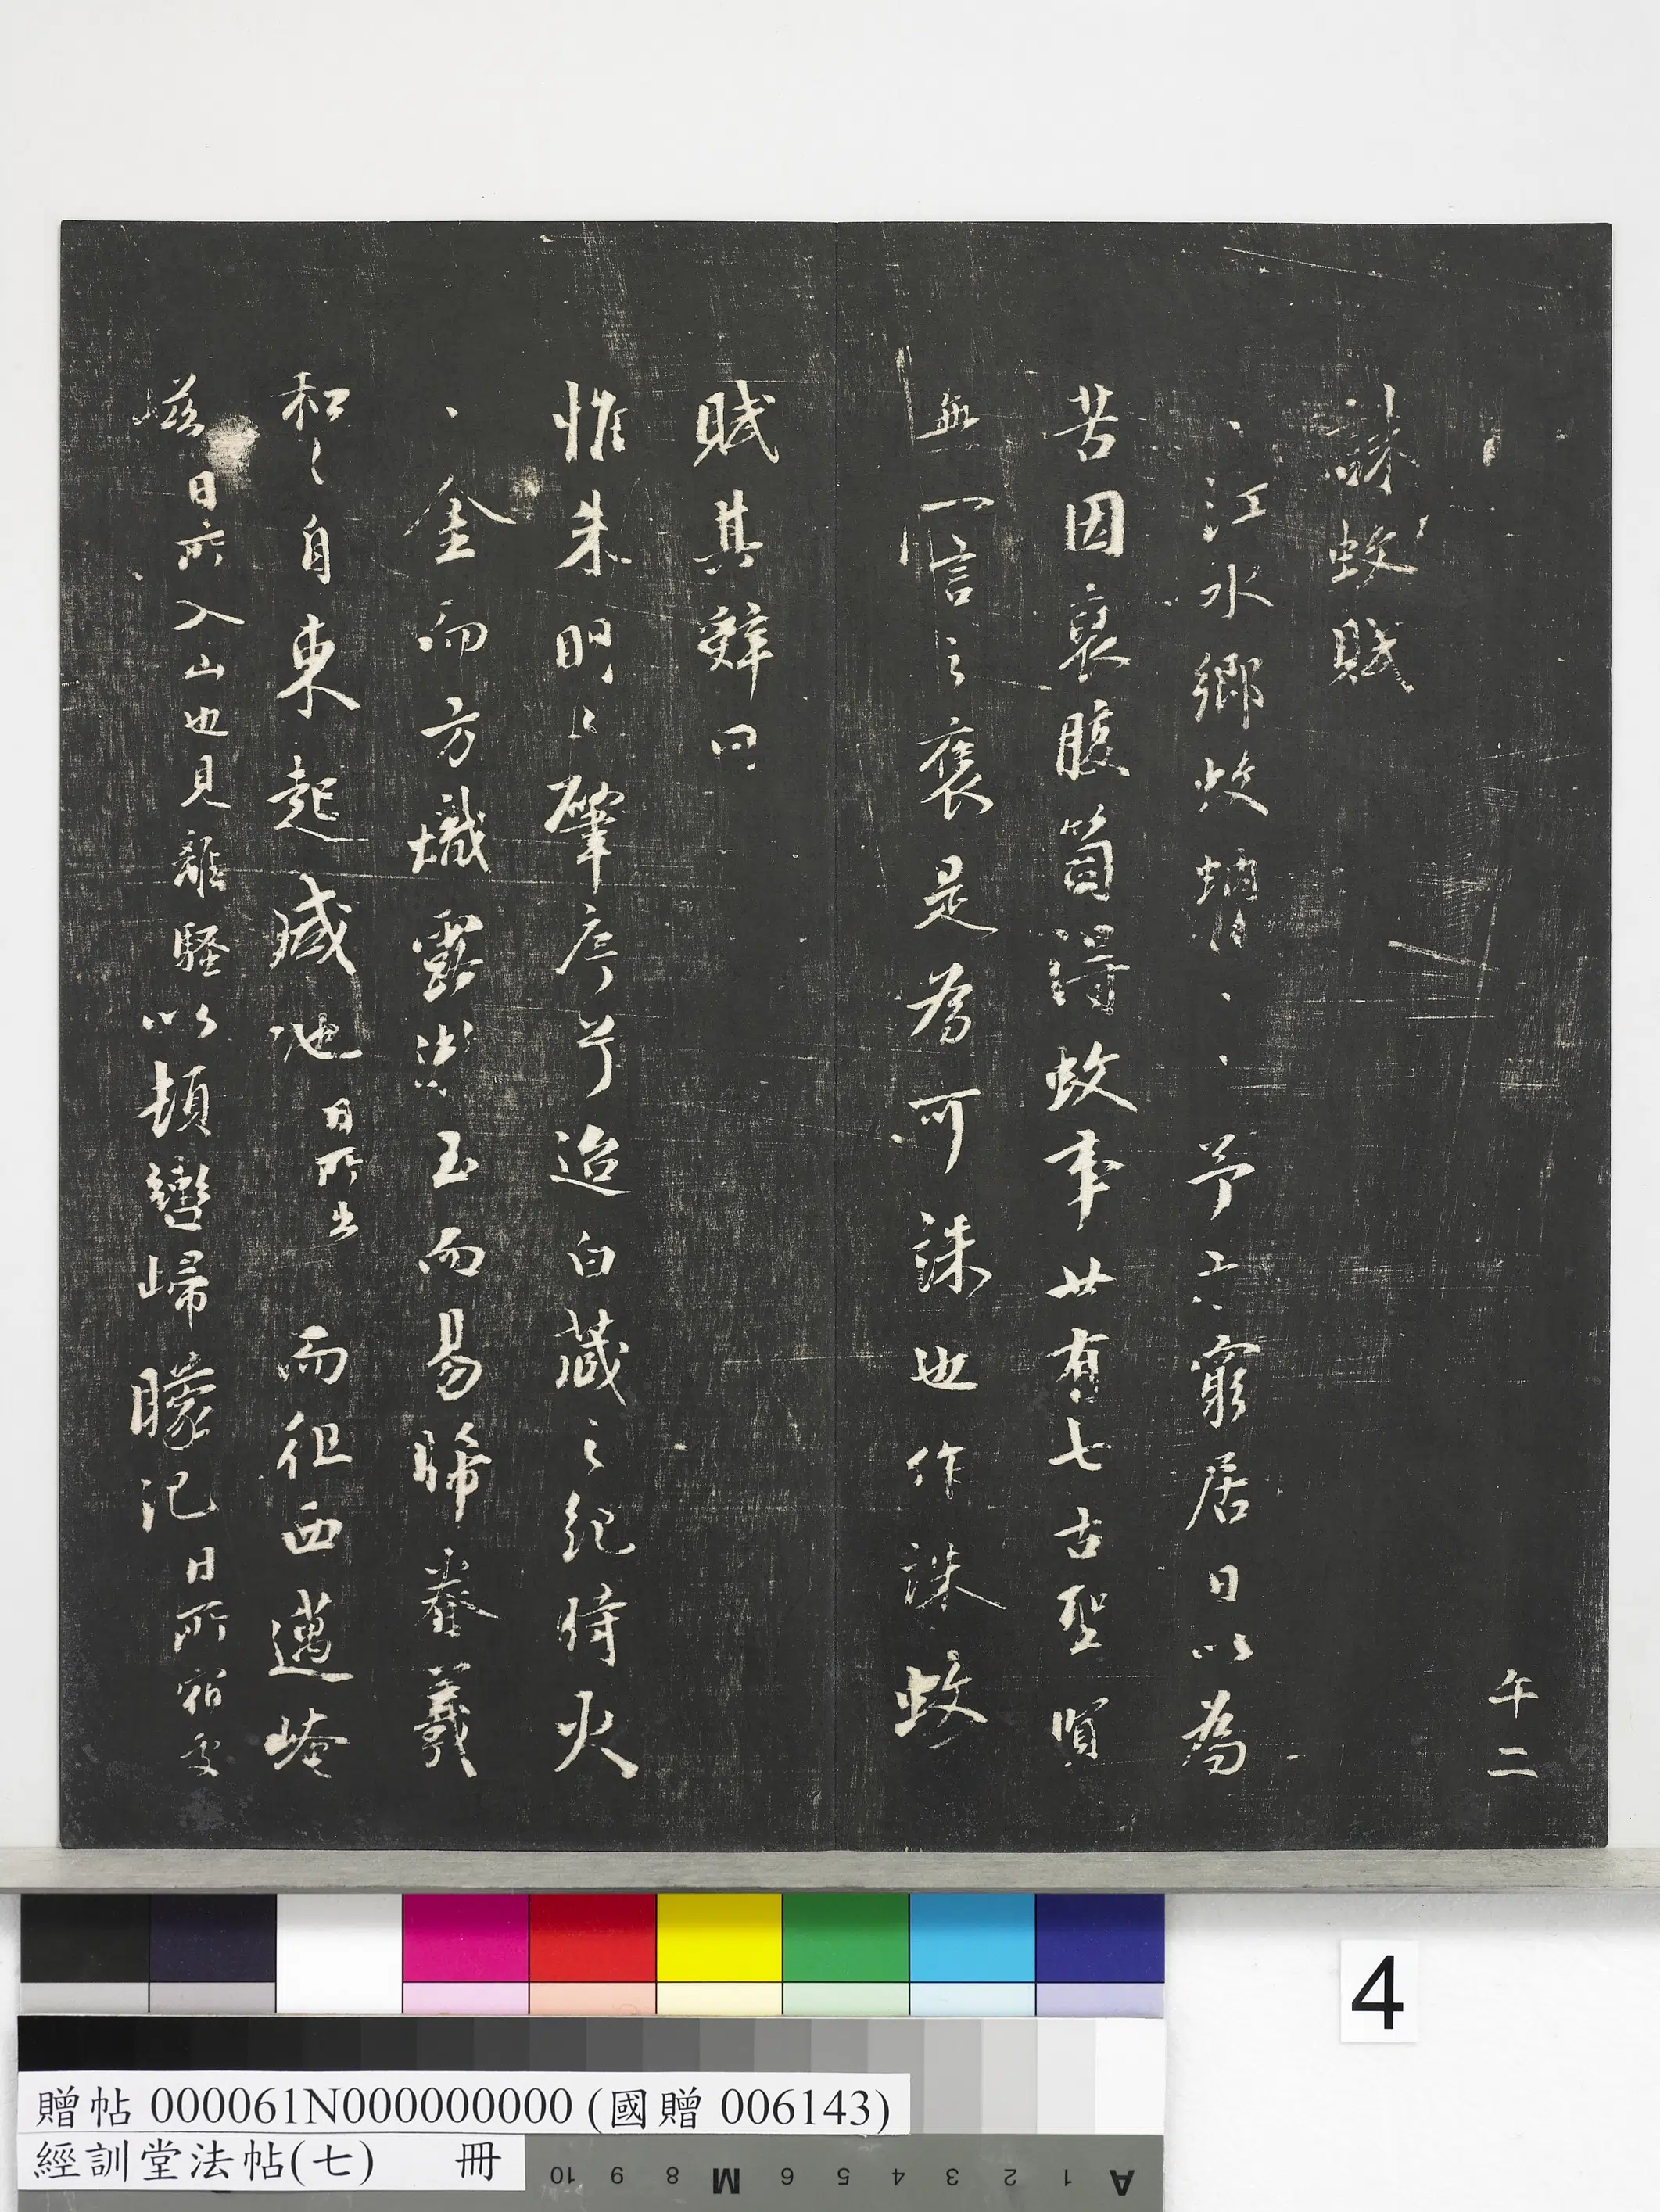 午二
誅蚊賦
江水鄉蚊蚋予窮居日以為
苦因裒腹笥得蚊事廿有七古聖賢
無一言之褒是為可誅也作誅蚊
賦其辭曰
惟朱明之肇序兮迨白藏之紀時火
金而方熾露漸玉而易晞眷羲
和之自東起咸池日所出而徂西邁崦
嵫日所入山也見離騷以頓轡歸矇汜日所宿處
4
贈帖 000061N000000000 (國贈 006143)
經訓堂法帖(七) 冊
A 1 2 3 4 5 6 M 8 9 10